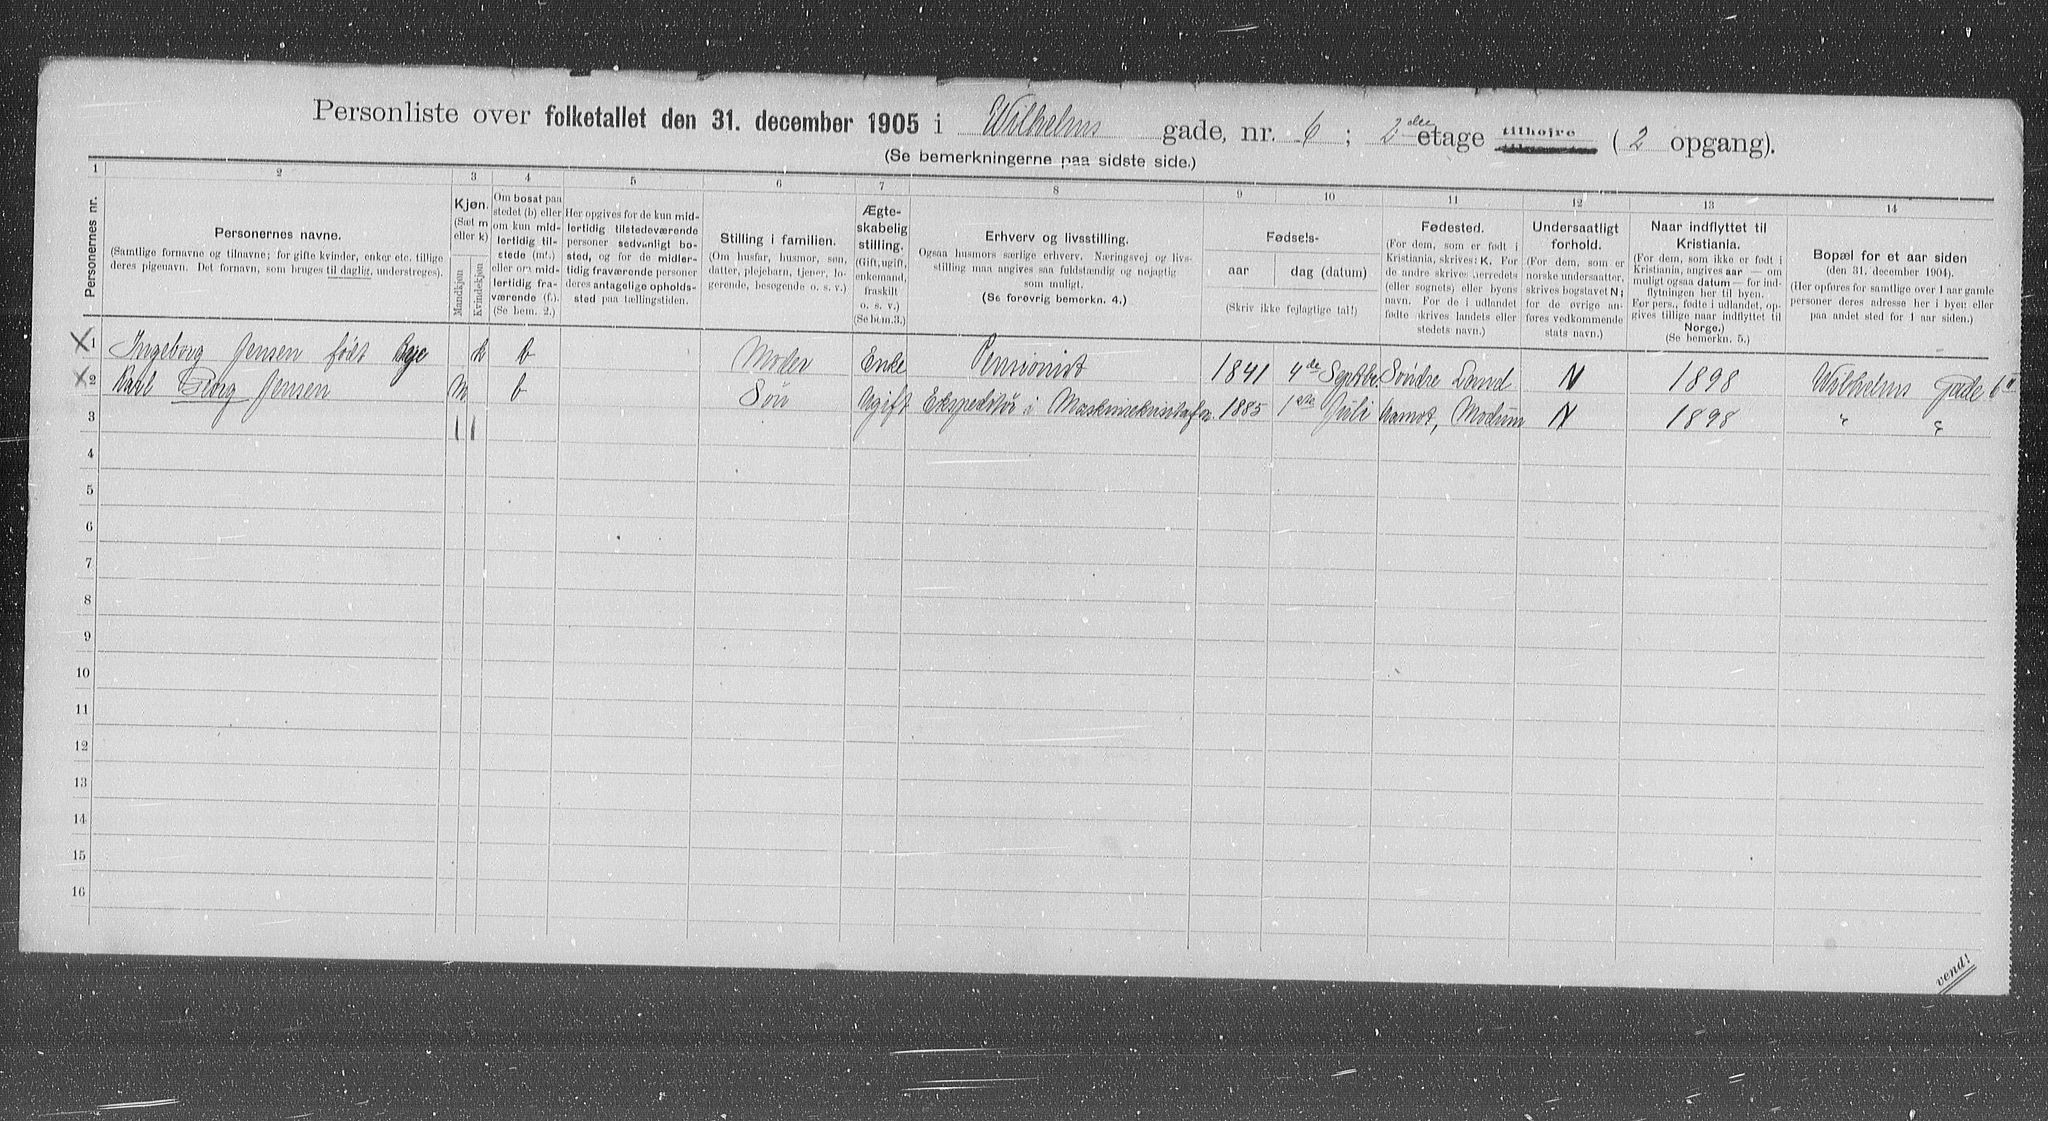 Personliste over folketallet den 31. december 1905 i Wilhelms gade, nr. 6; 2den etage tilhøjre (2 opgang).
(Se bemerkningerne paa sidste side.)
1 2 3 4 5 6 7 8 9 10 11 12 13 14
Personernes nr.
Personernes navne.
(Samtlige fornavne og tilnavne; for gifte kvinder, enker etc. tillige
deres pigenavn. Det fornavn, som bruges til daglig, understreges).
Kjøn.
(Sæt m
eller k)
Mandkjøn
Kvindekjøn
Om bosat paa
stedet (b) eller
om kun mid-
lertidig til-
stede (mt.)
eller om mid-
lertidig fra-
værende (f.).
(Se bem. 2.)
Her opgives for de kun mid-
lertidig tilstedeværende
personer sedvanligt bo-
sted, og for de midler-
tidig fraværende personer
deres antagelige opholds-
sted paa tællingstiden.
Stilling i familien.
(Om husfar, husmor, søn,
datter, plejebarn, tjener, lo-
gerende, besøgende o. s. v.)
Ægte-
skabelig
stilling.
(Gift, ugift,
enkemand,
fraskilt
o. s. v.)
(Se bem. 3.)
Erhverv og livsstilling.
Ogsaa husmors særlige erhverv. Næringsvej og livs-
stilling maa angives saa fuldstændig og nøjagtig
som muligt.
(Se forøvrig bemerkn. 4.)
Fødsels-
aar dag (datum)
(Skriv ikke fejlagtige tal!)
Fødested.
(For dem, som er født i
Kristiania, skrives: K. For
de andre skrives herredets
(eller sognets) eller byens
navn. For de i udlandet
fødte skrives landets eller
stedets navn.)
Undersaatligt
forhold.
(For dem, som er
norske undersaatter,
skrives bogstavet N;
for de øvrige an-
føres vedkommende
stats navn.)
Naar indflyttet til
Kristiania.
(For dem, som ikke er født i
Kristiania, angives aar — om
muligt ogsaa datum — for ind-
flytningen her til byen. For
pers., fødte i udlandet, op-
gives tillige naar indflyttet til
Norge.)
(Se bemerkn. 5.)
Bopæl for et aar siden
(den 31. december 1904).
(Her opføres for samtlige over 1 aar gamle
personer deres adresse her i byen eller
paa andet sted for 1 aar siden.)
X 1 Ingeborg Jensen født Bye k b Moder Enke Pensionist 1841 4de Septbr. Søndre Land N 1898 Wilhelms Gade 6 II
X 2 Karl Georg Jensen m b Søn Ugift 1885 1ste Juli Modum N 1898 " "
3
4
5
6
7
8
9
10
11
12
13
14
15
16
vend!